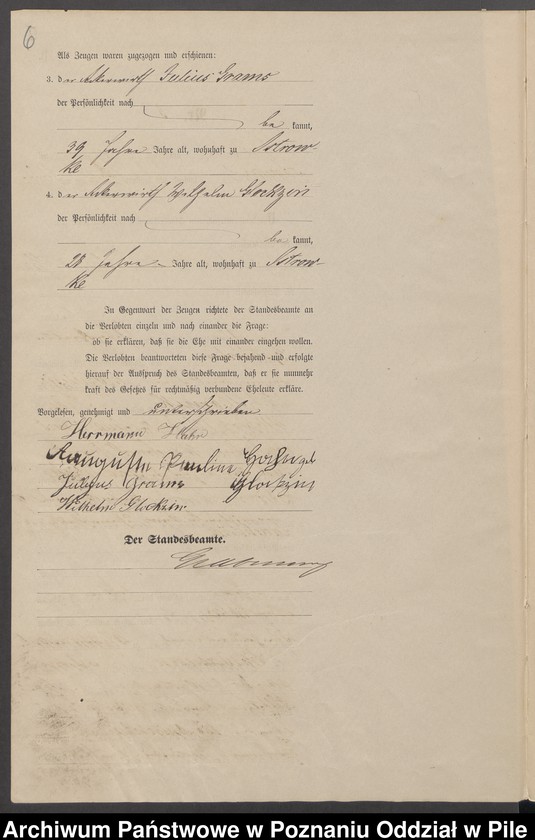 6
Als Zeugen waren zugezogen und erschienen:
3. der Ackerwirth Julius Grams
der Persönlichkeit nach
be kannt,
39 Jahre Jahre alt, wohnhaft zu Ostrow-
ke
4. der Ackerwirth Wilhelm Glockzin
der Persönlichkeit nach
be kannt,
28 Jahre Jahre alt, wohnhaft zu Ostrow-
ke
In Gegenwart der Zeugen richtete der Standesbeamte an
die Verlobten einzeln und nach einander die Frage:
ob sie erklären, daß sie die Ehe mit einander eingehen wollen.
Die Verlobten beantworteten diese Frage bejahend und erfolgte
hierauf der Ausspruch des Standesbeamten, daß er sie nunmehr
kraft des Gesetzes für rechtmäßig verbundene Eheleute erkläre.
Vorgelesen, genehmigt und unterschrieben
Herrmann
Auguste Pauline
Julius Grams Glockzin
Wilhelm Glockzin
Der Standesbeamte.
Archiwum Państwowe w Poznaniu Oddział w Pile